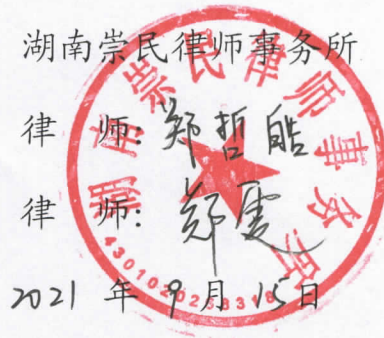 湖南崇民律师事务所
律 师: 郑哲皓
律 师: 郑雯
2021 年 9 月 15 日
湖南崇民律师事务所